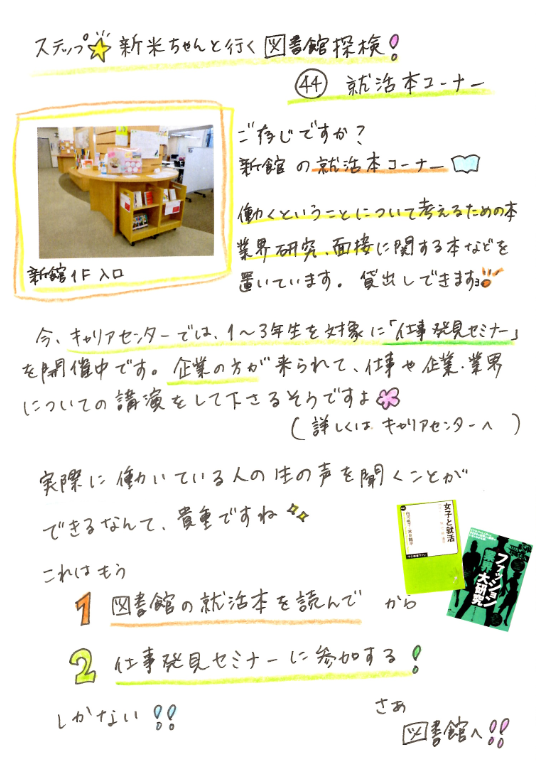 ステップ☆新米ちゃんと行く図書館探検!
㊹ 就活本コーナー
ご存じですか?
新館の就活本コーナー
働くということについて考えるための本
業界研究、面接に関する本などを
置いています。貸出しできますョ
新館1F 入口
今、キャリアセンターでは、1〜3年生を対象に「仕事発見セミナー」
を開催中です。企業の方が来られて、仕事や企業・業界
についての講演をして下さるそうですよ
(詳しくは キャリアセンターへ)
実際に働いている人の生の声を聞くことが
できるなんて、貴重ですね
女子と就活
ファッション
業界大研究
これはもう
1 図書館の就活本を読んで から
2 仕事発見セミナーに参加する!
しかない!!
さあ
図書館へ!!